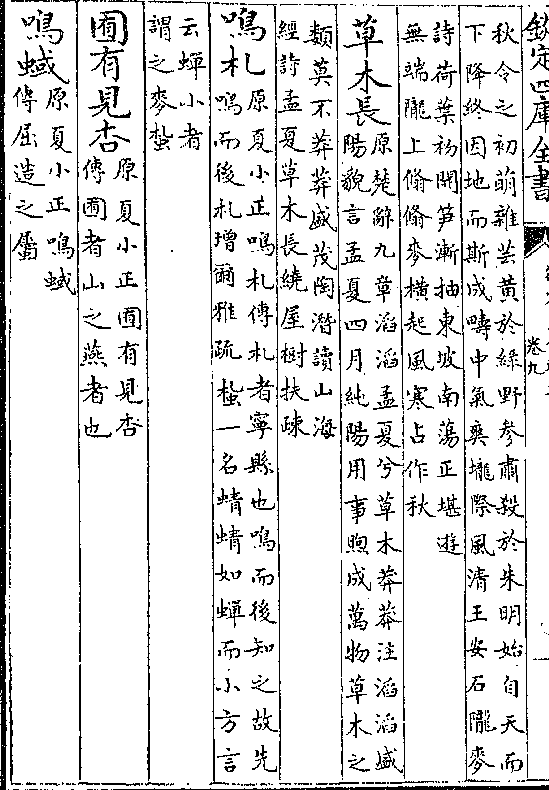 欽定四庫全書
卷九
秋令之初萌雜芸黃於綠野參肅殺於朱明始自天而
下降終因地而斯成疇中氣爽壠際風清王安石隴麥
詩荷葉初開笋漸抽東坡南蕩正堪遊
無端隴上翛翛麥橫起風寒占作秋
草木長
原楚辭九章滔滔孟夏兮草木莽莽注滔滔盛
陽貌言孟夏四月純陽用事煦成萬物草木之
類莫不莽莽盛茂陶潛讀山海
經詩孟夏草木長繞屋樹扶疎
鳴札
原夏小正鳴札傳札者寧縣也鳴而後知之故先
鳴而後札增爾雅疏蚻一名蜻蜻如蟬而小方言
云蟬小者
謂之麥蚻
囿有見杏
原夏小正囿有見杏
傳囿者山之燕者也
鳴蜮
原夏小正鳴蜮
傳屈造之屬